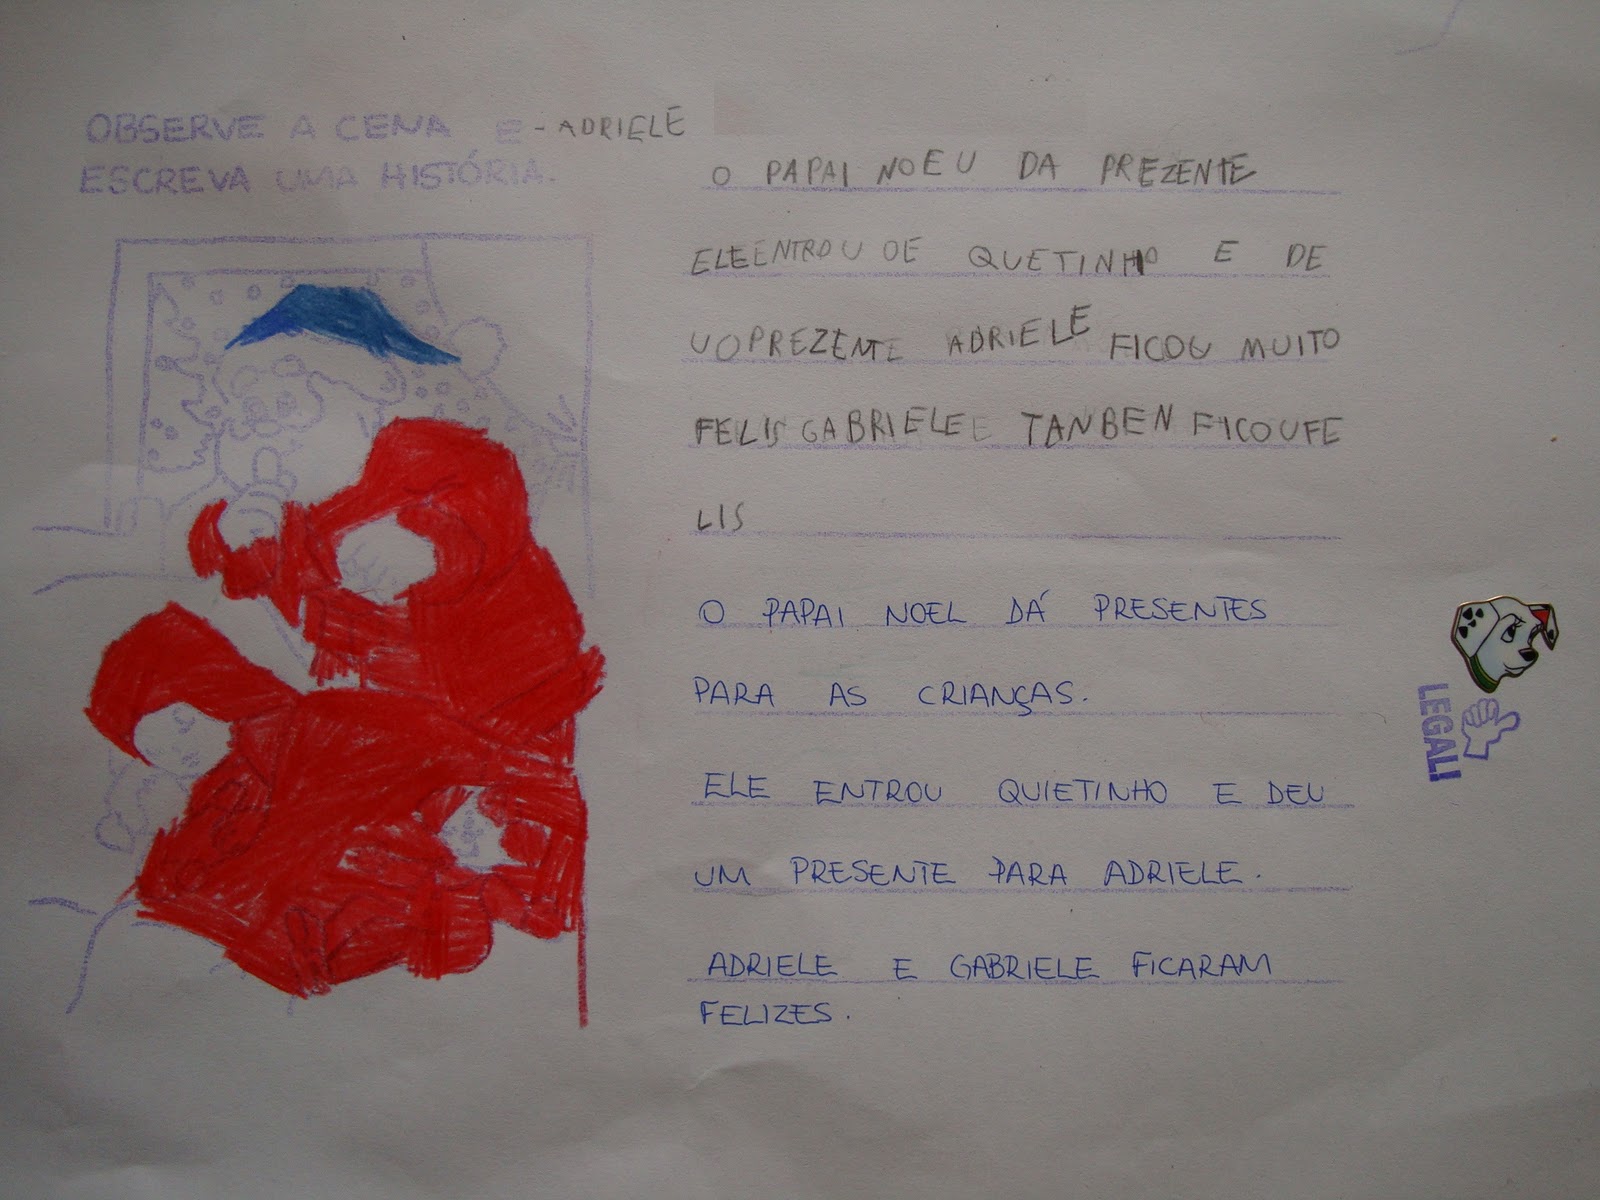 OBSERVE A CENA E - ADRIELE
ESCREVA UMA HISTÓRIA.
O PAPAI NOEU DA PREZENTE
ELEENTROU DE QUETINHO E DE
UOPREZENTE ADRIELE FICOU MUITO
FELIS GABRIELE E TANBEN FICOUFE
LIS
O PAPAI NOEL DÁ PRESENTES
PARA AS CRIANÇAS.
ELE ENTROU QUIETINHO E DEU
UM PRESENTE PARA ADRIELE.
ADRIELE E GABRIELE FICARAM
FELIZES.
LEGAL!